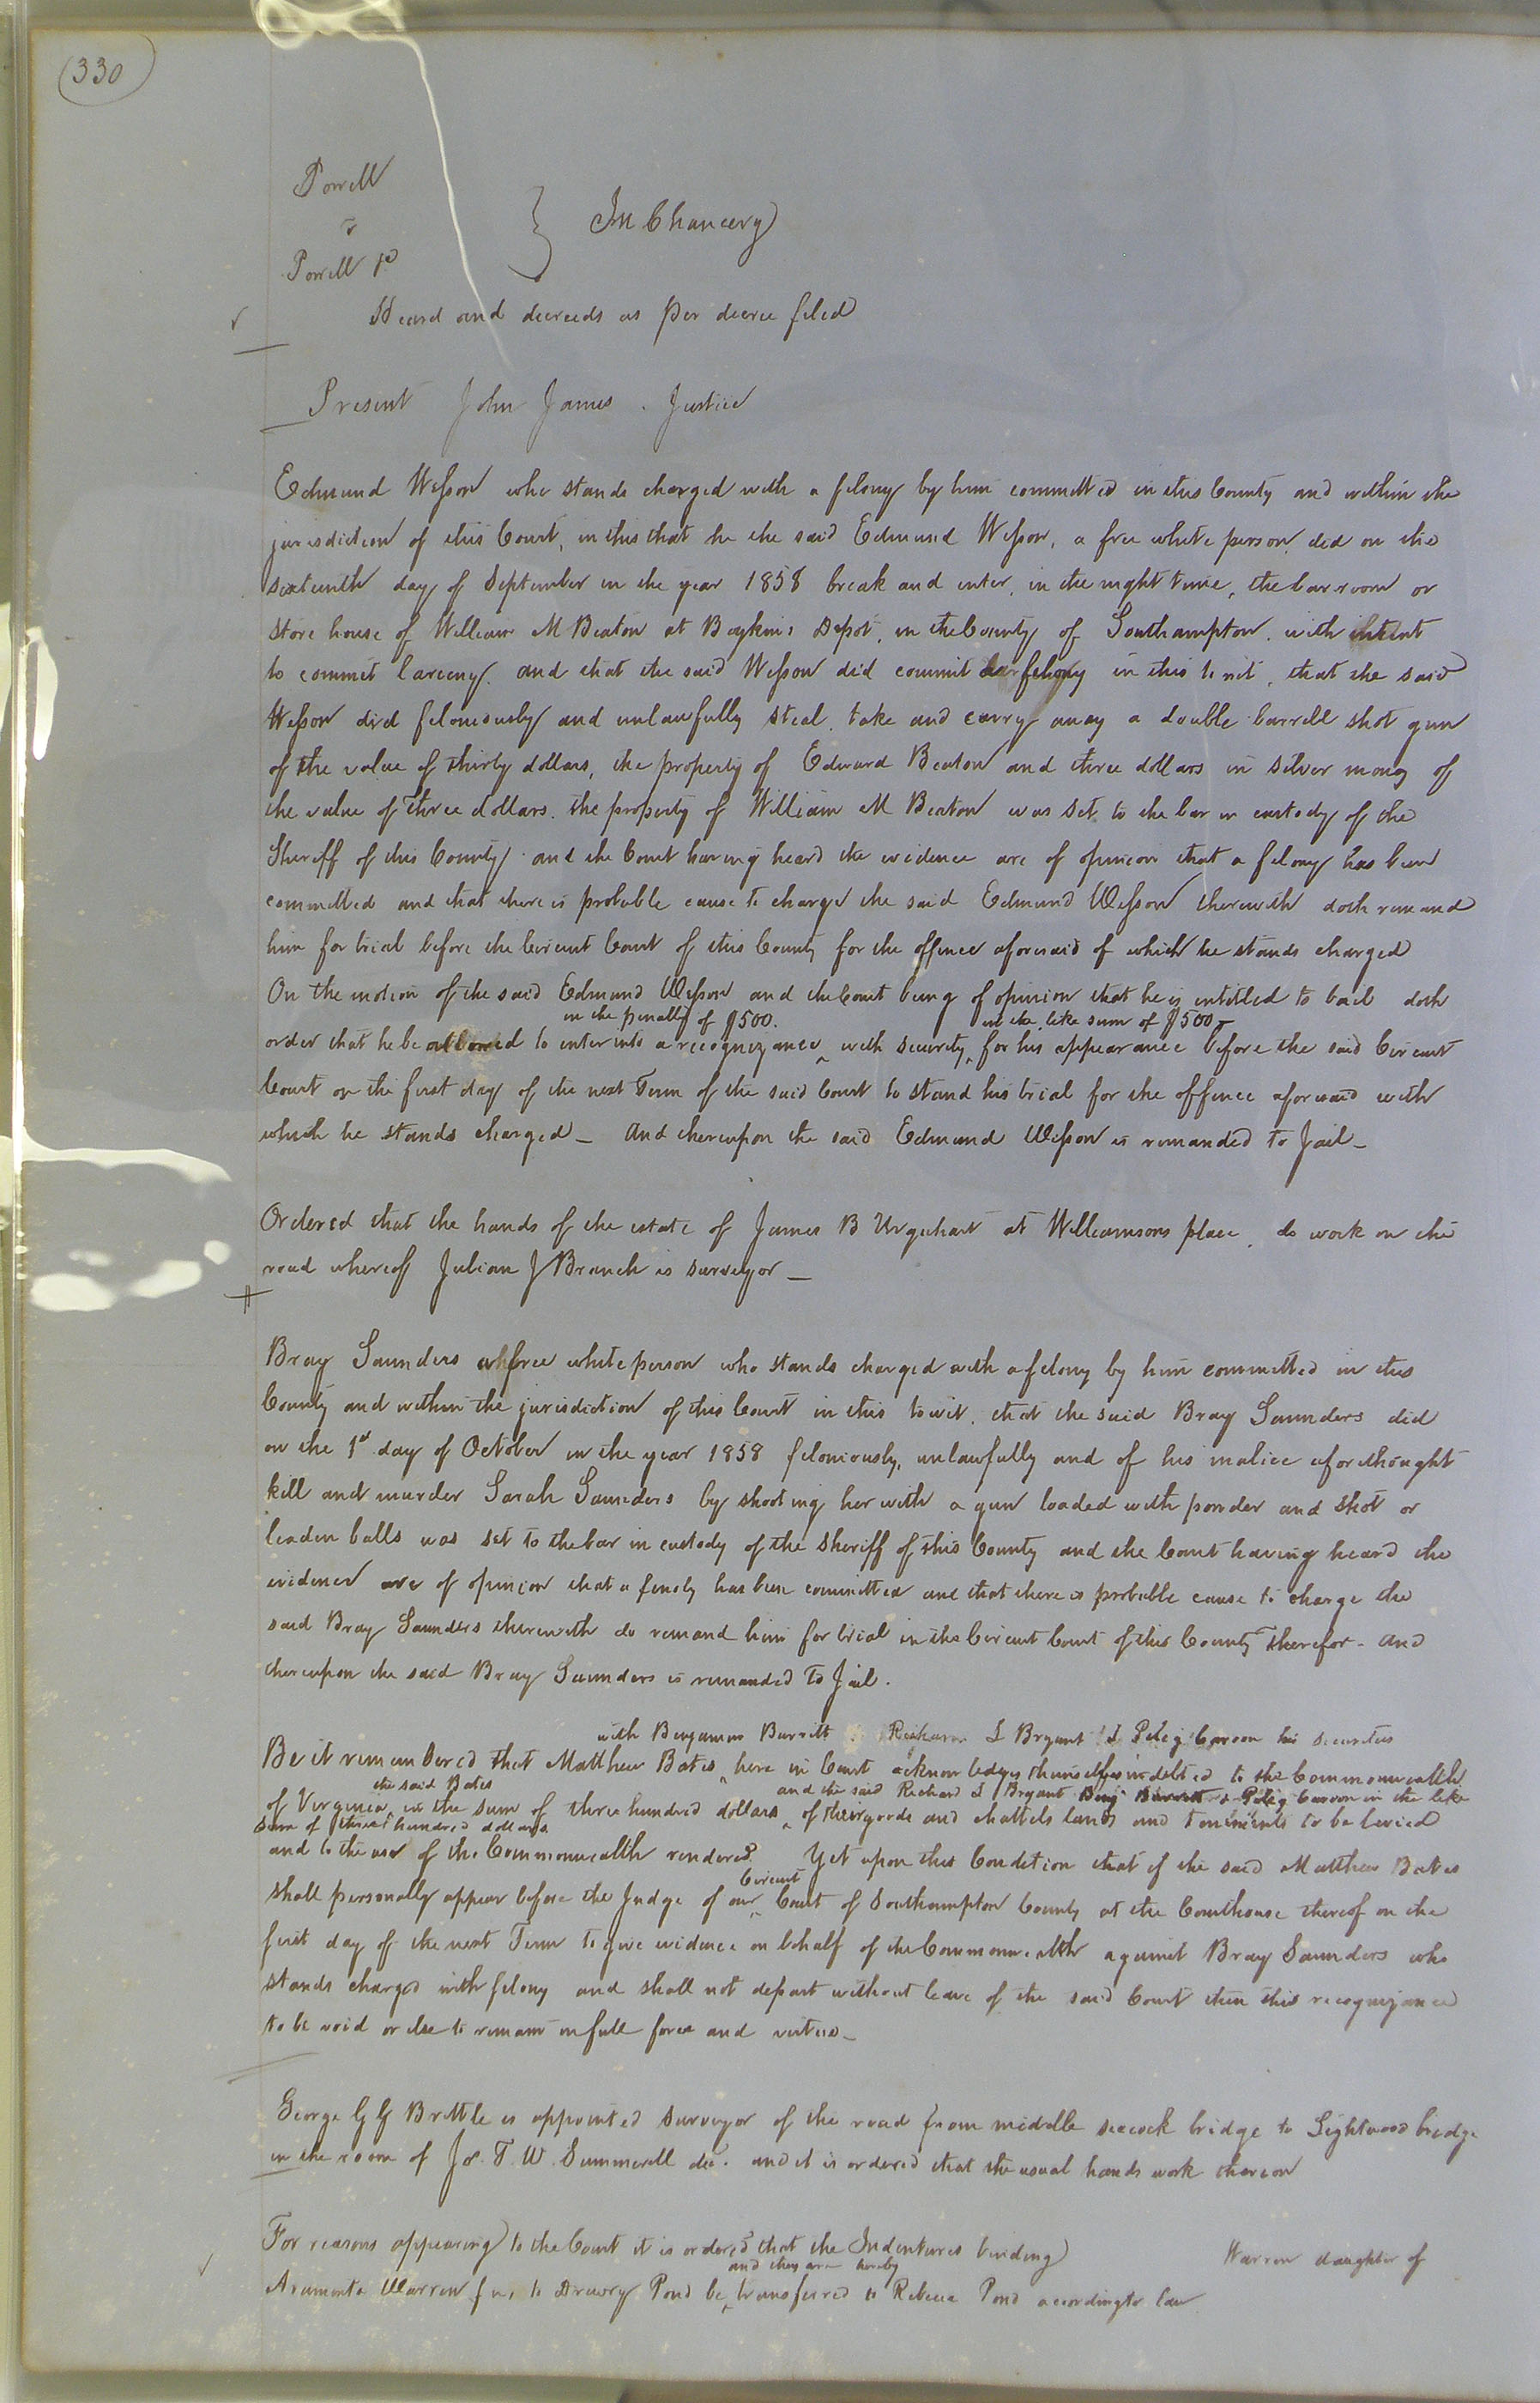 330
Powell
v
Powell &c
In Chancery
Heard and decreeds as per decree filed
Present John James . Justice
Edmund Wesson who stands charged with a felony by him committed in this County and within the
jurisdiction of this Court, in this that he the said Edmund Wesson, a free white person, did on the
sixteenth day of September in the year 1858 break and enter, in the night time, the barroom or
store house of William M Beaton at Boykins Depot, in the County of Southampton, with intent
to commit larceny. and that the said Wesson did commit felony in this to wit, that the said
Wesson did feloneously and unlawfully steal, take and carry away a double barrell shot gun
of the value of thirty dollars, the property of Edward Beaton and three dollars in silver money of
the value of three dollars. the property of William M Beaton was set to the bar in custody of the
Sheriff of this County and the Court having heard the evidence are of opinion that a felony has been
committed and that there is probable cause to charge the said Edmund Wesson therewith doth remand
him for trial before the Circuit Court of this County for the offence aforesaid of which he stands charged
On the motion of the said Edmund Wesson and the Court being of opinion that he is entitled to bail doth
in the penalty of $500. in the like sum of $500
order that he be allowed to enter into a recognizance with security for his appearance before the said Circuit
Court on the first day of the next Term of the said Court to stand his trial for the offence aforesaid with
which he stands charged _ And thereupon the said Edmund Wesson is remanded to Jail _
Ordered that the hands of the estate of James B Urquhart at Williamsons place, do work on the
road whereof Julian J Branch is surveyor _
Bray Saunders free white person who stands charged with a felony by him committed in this
County and within the jurisdiction of this Court in this to wit, that the said Bray Saunders did
on the 1st day of October in the year 1858 feloniously, unlawfully and of his malice aforethought
kill and murder Sarah Saunders by shooting her with a gun loaded with powder and shot or
leaden balls was set to the bar in custody of the Sheriff of this County and the Court having heard the
evidence are of opinion that a fenoly has been committed and that there is probable cause to charge the
said Bray Saunders therewith do remand him for trial in the Circuit Court of this County therefor - And
thereupon the said Bray Saunders is remanded to Jail.
with Benjamin Barrett Richard L Bryant & Peleg Carroon his securities
Be it remembered that Matthew Bates here in Court acknowledges themselves indebted to the Commonwealth
the said Bates and the said Richard L Bryant Benj Barrett & Peleg Carroon in the like
of Virginia in the sum of three hundred dollars of their goods and chattels lands and tenements to be levied
sum of three hundred dollars
and to the use of the Commonwealth rendered. Yet upon this Condition that if the said Matthew Bates
Circuit
shall personally appear before the Judge of our Court of Southampton County at the Courthouse thereof on the
first day of the next Term to give evidence on behalf of the Commonwealth against Bray Saunders who
stands charged with felony and shall not depart without leave of the said Court then this recognizance
to be void or else to remain in full force and virtue _
George G G Brittle is appointed surveyor of the road from middle seacock bridge to Lightwood bridge
in the room of Jos. T. W. Summerell dec. and it is ordered that the usual hands work thereon
For reasons appearing to the Court it is ordered that the Indentures binding Warren daughter of
and they are hereby
Araminta Warren f n, to Drewry Pond be transferred to Rebecca Pond according to law